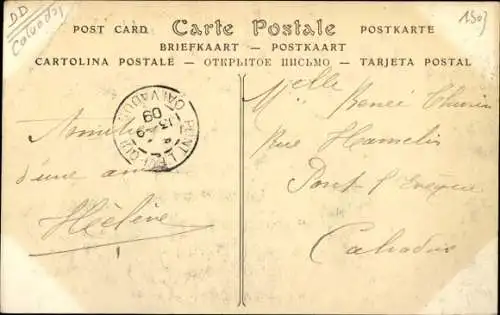 DD
Calvados
1503
POST CARD Carte Postale POSTKARTE
BRIEFKAART — POSTKAART
CARTOLINA POSTALE — ОТКРЫТОЕ ПИСЬМО — TARJETA POSTAL
CALVADOS
09
Melle Renée
Rue Hamelin
Pont l'Evêque
Calvados
Amitiés
d'une amie
Hélène